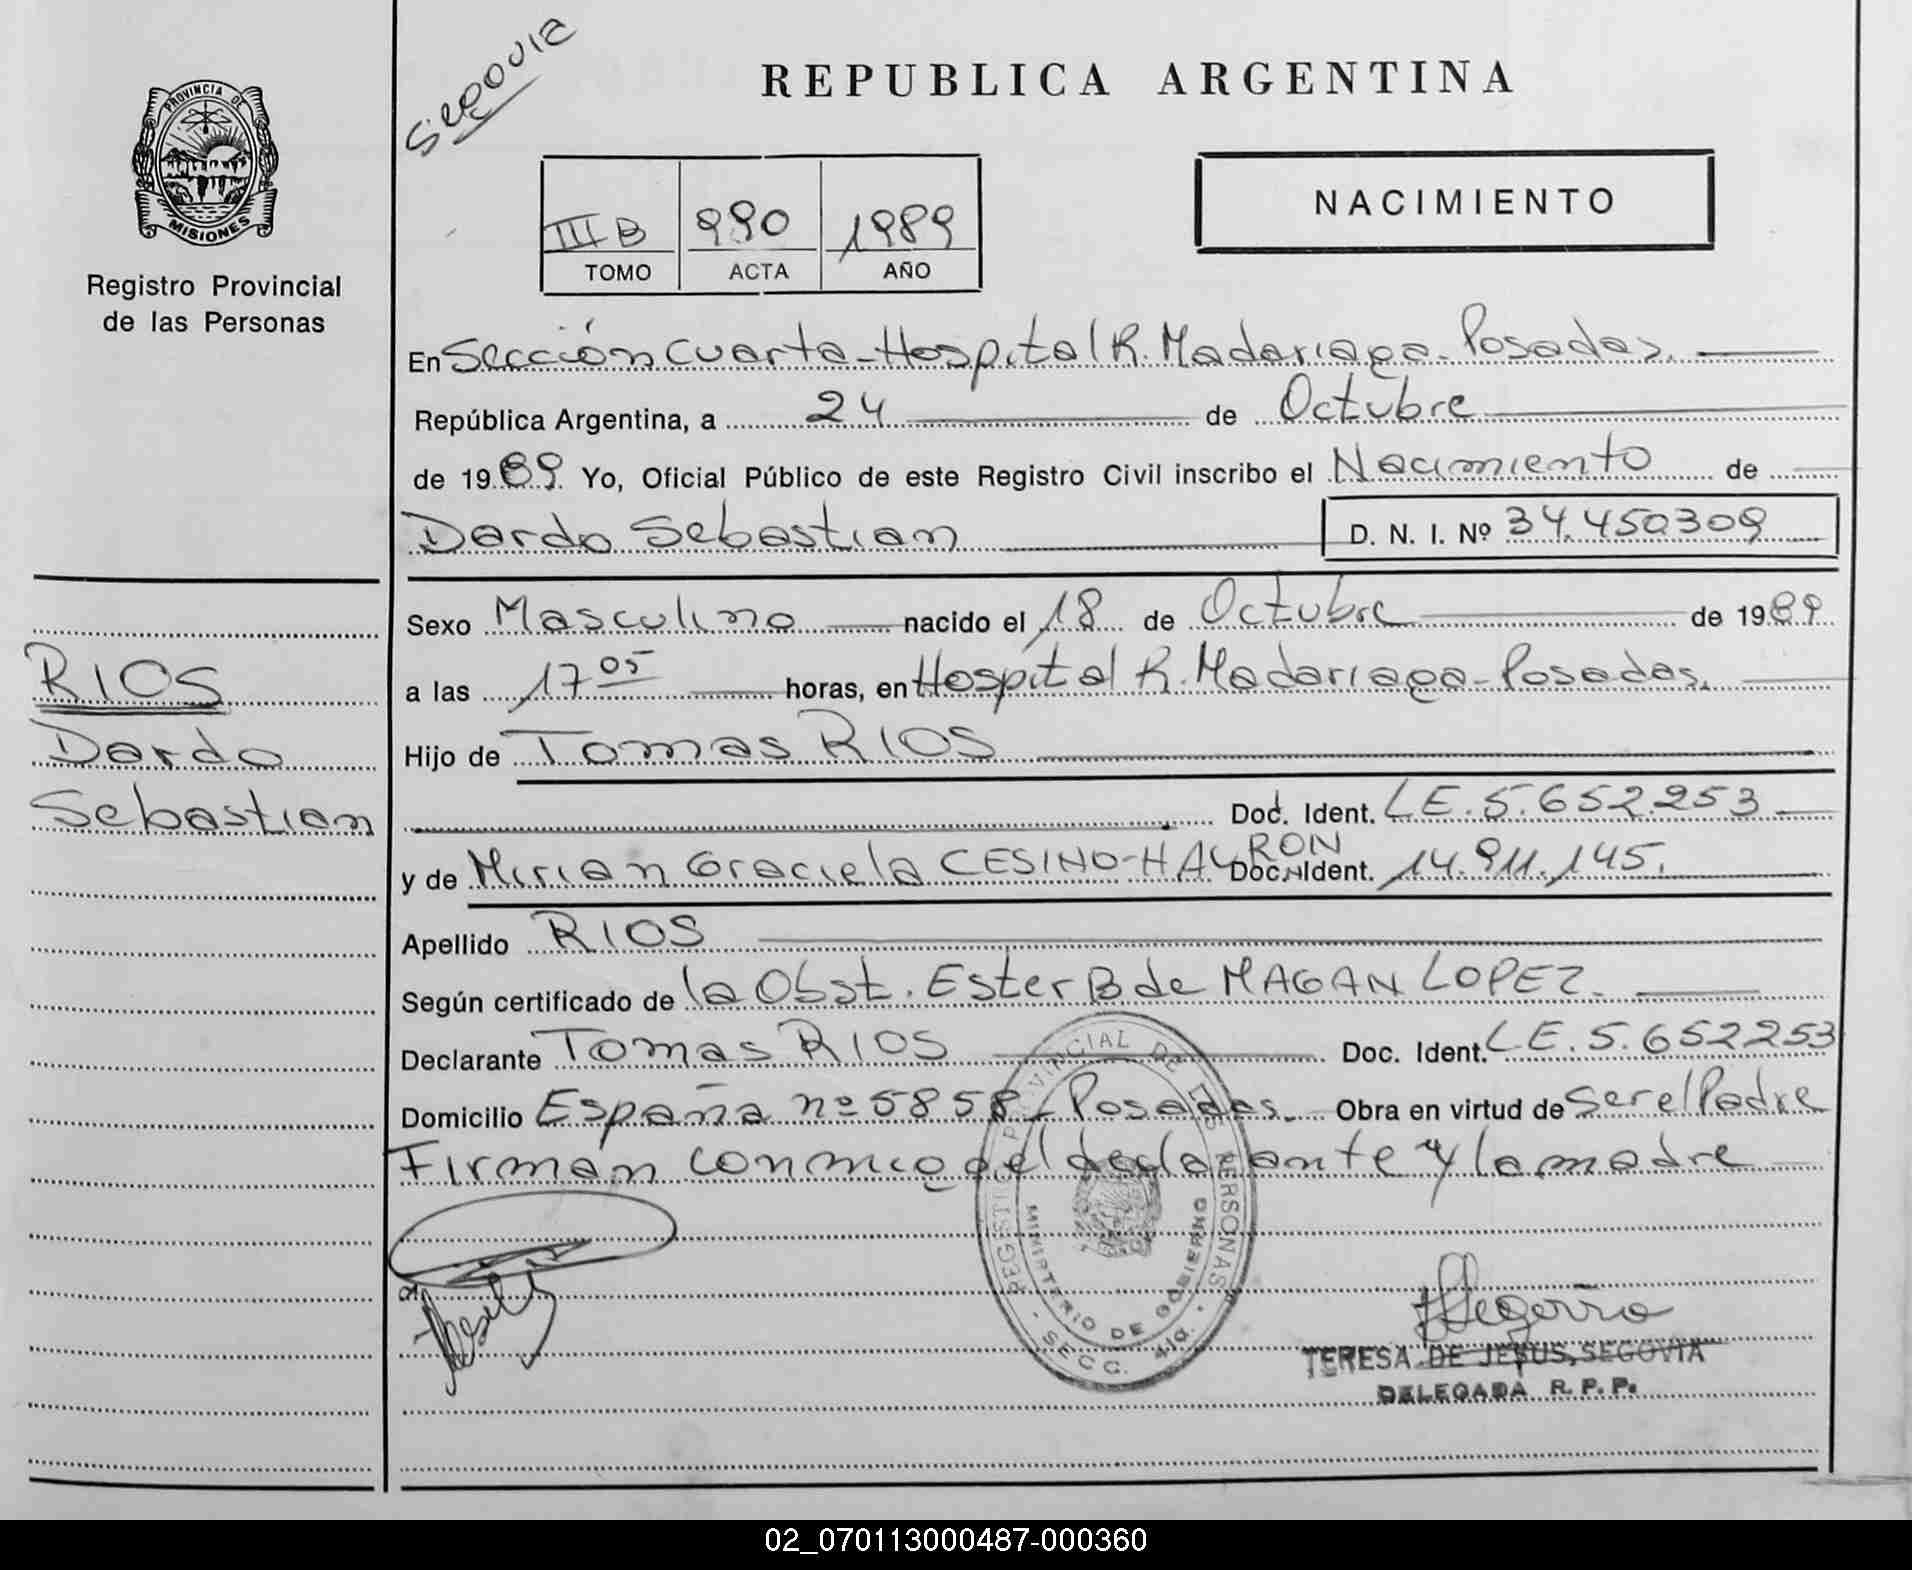 Segovia
REPUBLICA ARGENTINA
PROVINCIA DE
MISIONES
Registro Provincial
de las Personas
III B 990 1989
TOMO ACTA AÑO
NACIMIENTO
En Sección Cuarta-Hospital R. Madariaga-Posadas.
República Argentina, a 24 de Octubre
de 1989 Yo, Oficial Público de este Registro Civil inscribo el Nacimiento de
Dardo Sebastian D. N. I. Nº 34.450309
RIOS
Dardo
Sebastian
Sexo Masculino nacido el 18 de Octubre de 1989
a las 17 05 horas, en Hospital R. Madariaga-Posadas.
Hijo de Tomas RIOS
Doc. Ident. LE.5.652.253
y de Mirian Graciela CESINO-HAYRON Doc. Ident. 14.911.145.
Apellido RIOS
Según certificado de la Obst. Ester B de MAGAN LOPEZ.
Declarante Tomas RIOS Doc. Ident. LE.5.652253
Domicilio España nº 5858-Posadas. Obra en virtud de Ser el Padre
Firman conmigo el declarante y la madre
REGISTRO PROVINCIAL DE LAS PERSONAS
MINISTERIO DE GOBIERNO
- SECC. 4ta. -
TERESA DE JESUS SEGOVIA
DELEGADA R. P. P.
02_070113000487-000360